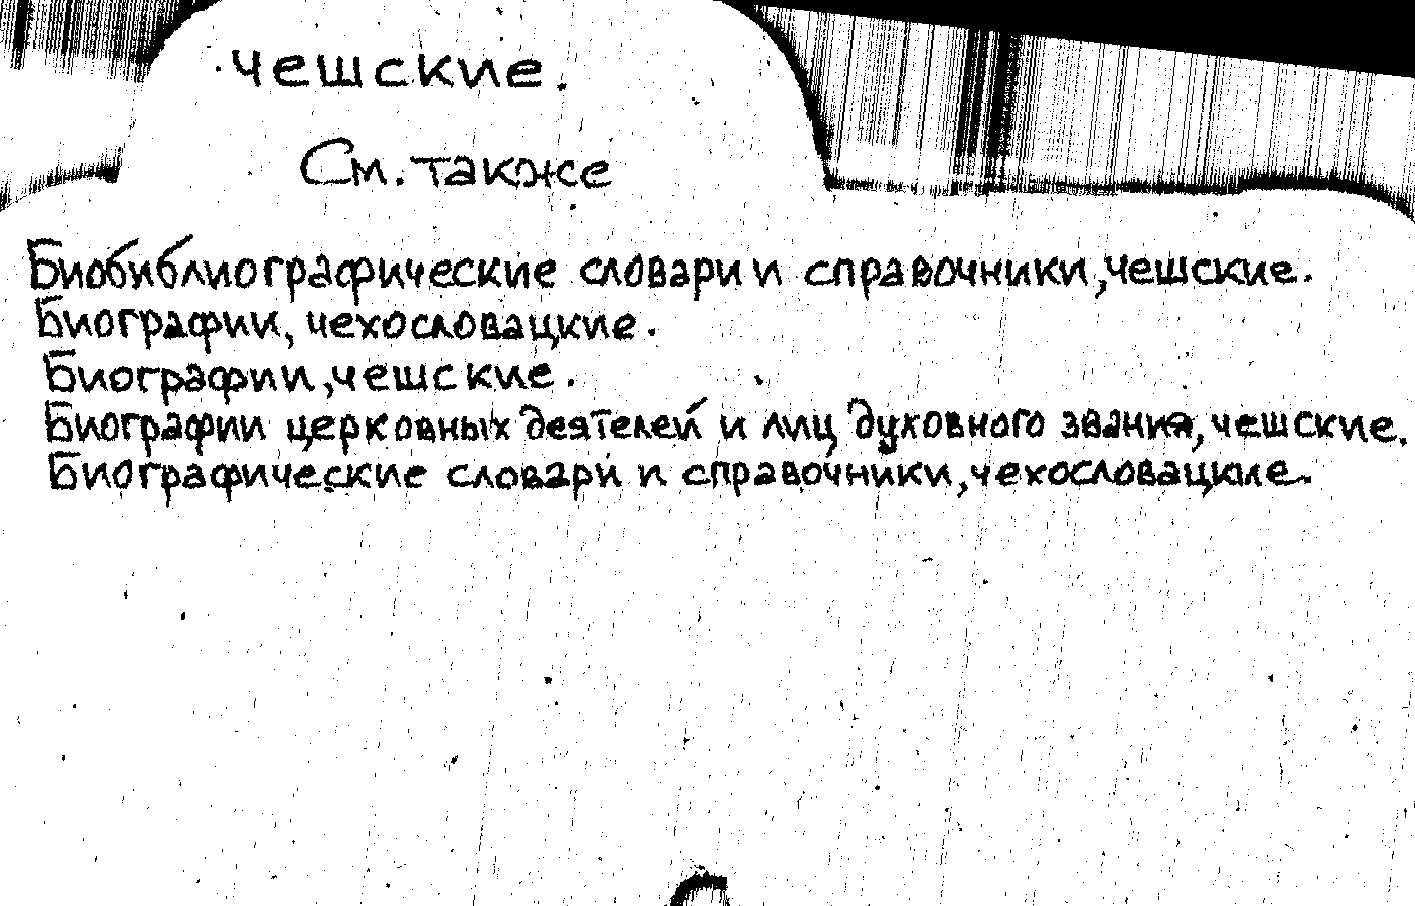 чешские.
См. также
Биобиблиографические словари и справочники, чешские.
Биографии, чехословацкие.
Биографии, чешские.
Биографии церковных деятелей и лиц духовного звания, чешские.
Биографические словари и справочники, чехословацкие.